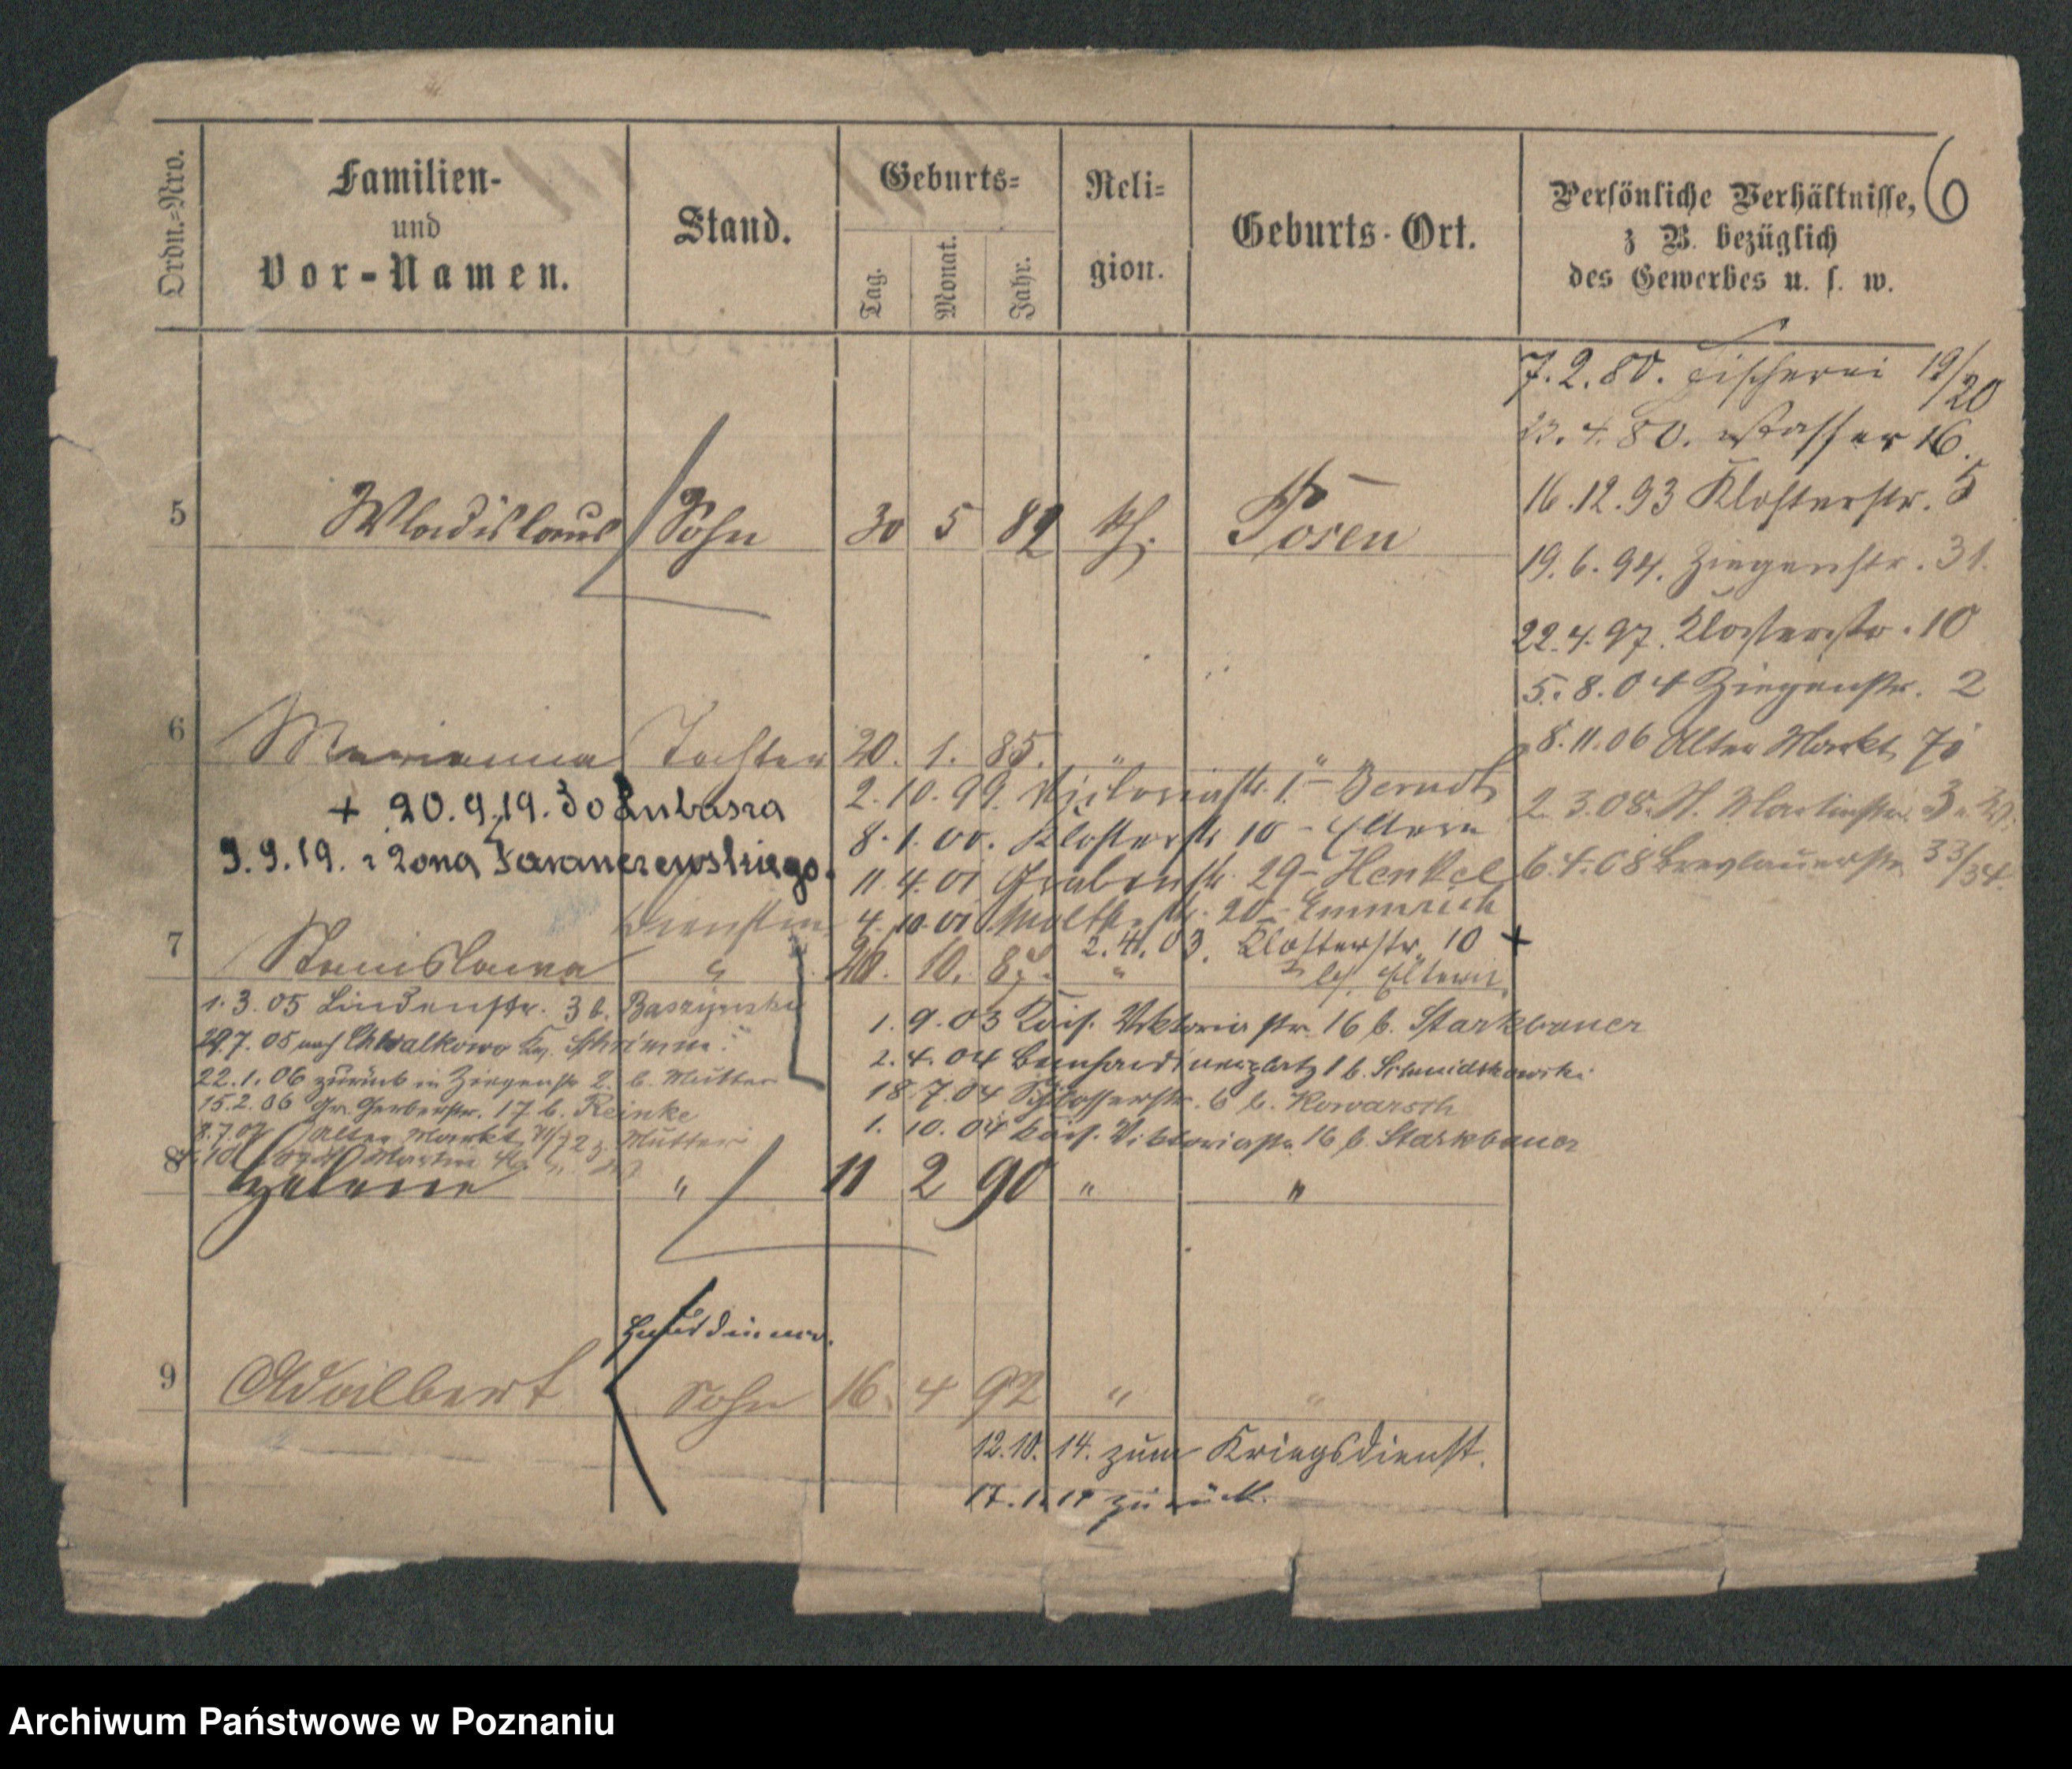 6
Ordn.=Nro.
Familien-
und
Vor-Namen.
Stand.
Geburts=
Tag.
Monat.
Jahr.
Reli=
gion.
Geburts-Ort.
Persönliche Verhältnisse,
z B. bezüglich
des Gewerbes u. s. w.
7.2.80. Fischerei 19/20
4. 80. Wasser 16.
16.12.93 Klosterstr. 5
19.6.94. Ziegenstr. 31.
22.4.97. Klosterstr. 10
5.8.04 Ziegenstr. 2
8.11.06 Alter Markt
2.3.08. St. Martinstr. 3
6.4.08 Breslauerstr. 33/34.
5 Wladislaus Sohn 30 5 82 kth. Posen
6 Marianna Tochter 20. 1. 85. " "
+ 20.9.19. do Lubasza
9.9.19. żona
2.10.99. Victoriastr. 1. - Berndt
8.1.00. Klosterstr 10 - Eltern
11.4.01 Grabenstr. 29 - Henkel
4.10.01 Moltkestr. 20 - Emmrich
Dienstm.
2.4.03. Klosterstr. 10 +
7 Stanislawa " 10. 87. " b/ Eltern
1.3.05 Lindenstr. 3 b. Baszynski
29.7.05 nach Chwalkowo Kr. Schrimm.
22.1.06 zurück in Ziegenstr 2. b. Mutter
15.2.06 Gr. Gerberstr. 17 b. Reinke
Alter Markt z. Mutter
Martin
1.9.03 Kais. Viktoria str. 16 b. Starkbauer
2.4.04 Bernhardinerplatz 1 b. Schmidtkowski
18.7.04 Schlosserstr. 6 b. Kowarsch
1.10.04 Kais. Viktoriastr. 16 b. Starkbauer
8 Helene " 11 2 90 " "
Hausdiener.
9 Adalbert Sohn 16. 4 92 " "
12.10.14. zum Kriegsdienst.
zurück.
Archiwum Państwowe w Poznaniu